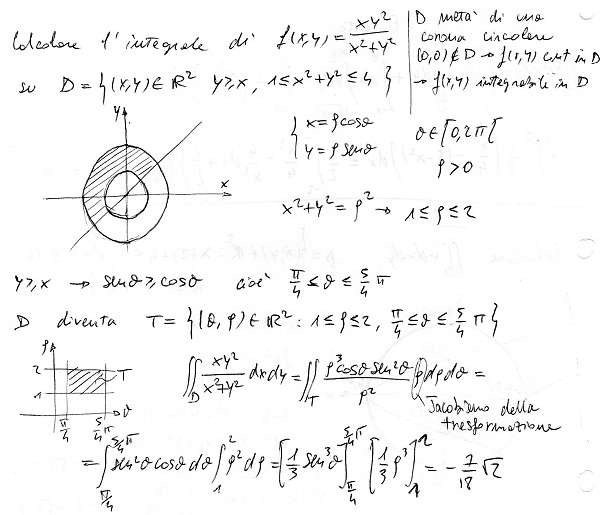 Calcolare l'integrale di f(x,y) = xy²/(x²+y²)
su D = {(x,y) ∈ ℝ² y ≥ x, 1 ≤ x²+y² ≤ 4}
D metà di una
corona circolare
(0,0) ∉ D → f(x,y) cont in D
→ f(x,y) integrabile in D
y
x
{ x = ρ cosϑ
y = ρ senϑ
ϑ ∈ [0, 2π[
ρ > 0
x²+y² = ρ² → 1 ≤ ρ ≤ 2
y ≥ x → senϑ ≥ cosϑ cioè π/4 ≤ ϑ ≤ 5/4 π
D diventa T = {(ϑ, ρ) ∈ ℝ² : 1 ≤ ρ ≤ 2, π/4 ≤ ϑ ≤ 5/4 π}
ρ
2
1
T
π/4 5/4 π ϑ
∬_D xy²/(x²+y²) dx dy = ∬_T ρ³cosϑ sen²ϑ/ρ² ρ dρ dϑ =
Jacobiano della
trasformazione
= ∫_{π/4}^{5/4 π} sen²ϑ cosϑ dϑ ∫_1^2 ρ² dρ = [1/3 sen³ϑ]_{π/4}^{5/4 π} [1/3 ρ³]_1^2 = - 7/18 √2